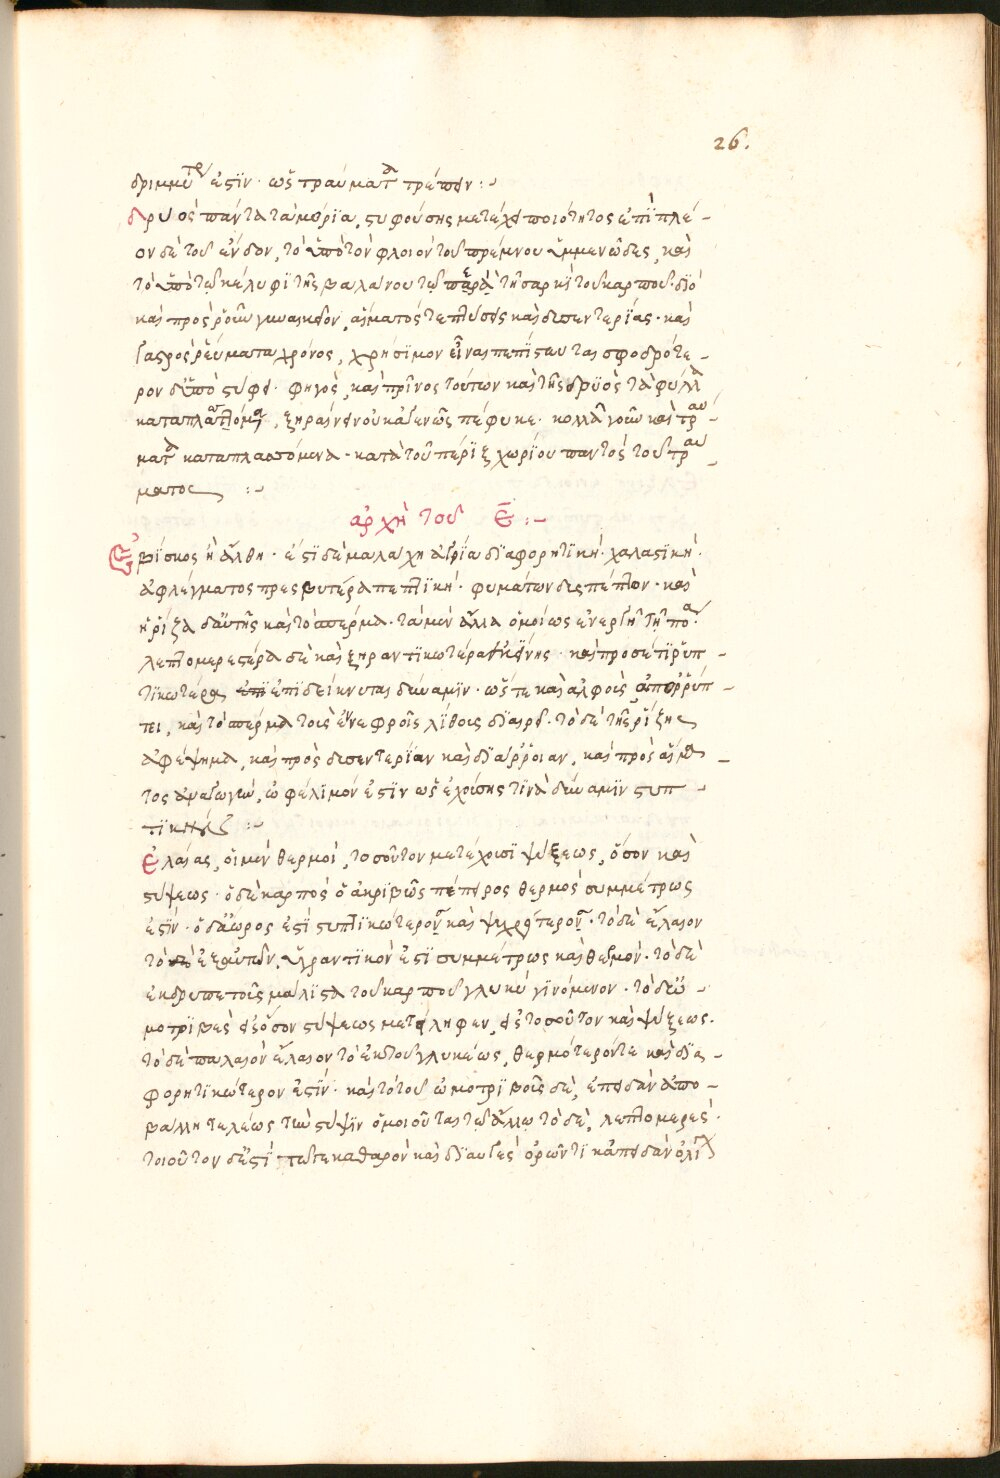 26.
δριμμύτερ ἐστῒν · ὡς τραύματα τρέπειν :~
δρυὸς πάντα τὰ μόρϊα, στυφούσης μετέχει ποιότητος ἐπῒ πλέ-
ον δὲ τοῦ ἔνδον, τὸ ὑπὸ τὸν φλοιὸν τοῦ πρέμνου ὑμμενῶδες, καὶ
τὸ ὑπὸ τῷ κελύφϊ τῆς βαλάνου τῷ παρὰ τῇ σαρκῒ τοῦ καρποῦ · διὸ
καὶ πρὸς ῥοῦν γυναικεῖον, αἵματός τε πτύσεις καὶ δισεντερίας · καὶ
γαστρὸς ῥεύματα χρόνος, χρήσϊμον εἶναι πεπΐστευται σφοδρότε-
ρον δ' ὑπὸ στύφει · φηγὸς, καὶ πρῖνος τούτων καὶ τῆς δρυὸς τὰ φύλλα
καταπλαττόμενα, ξηραίνειν οὐκ ἀγενῶς πέφυκε · κολλᾶ γοῦν καὶ τραύ-
ματα καταπλασσόμενα · κατὰ τοῦ πέριξ χωρίου παντὸς τοῦ τραύ-
ματος :~
ἀρχὴ τοῦ Ε :~
Ἐβΐσκος ἢ ἄλθη · ἐστῒ δὲ μαλάχη ἀγρΐα δϊαφορητϊκὴ · χαλαστϊκή ·
ἀφλέγματος πρεσβυτέρα πεπτϊκή · φυμάτων δισπέπτων · καὶ
ἡ ῥίζα δ' αὐτῆς καὶ τὸ σπέρμα · τὰ μὲν ἄλλα ὁμοίως ἐνεργῆ τῇ πόα
λεπτομερεστέρα δὲ καὶ ξηραντϊκωτέρα ἐκείνης · καὶ προσέτι ῥυπ-
τϊκωτέρα ἐπϊδείκνυται δύναμϊν · ὥστε καὶ ἀλφοὺς ἀπορρύπ-
τει, καὶ τὸ σπέρμα τοὺς ἐν νεφροῖς λίθοις δϊαιρεῖ · τὸ δὲ τῆς ῥίζης
ἀφέψημα, καὶ πρὸς δισεντερΐαν καὶ δϊάρροιαν, καὶ πρὸς αἵμα-
τος ἀναγωγὴν, ὠφέλιμόν ἐστϊν ὡς ἐχούσης τϊνὰ δύναμϊν στυπ-
τϊκήν :~
Ἐλαίας, οἱ μὲν θερμοὶ, τοσοῦτον μετέχουσϊ ψύξεως, ὅσον καὶ
στύψεως · ὁ δὲ καρπὸς ὁ ἀκριβῶς πέπειρος θερμὸς συμμέτρως
ἐστΐν · ὁ δ' ἄωρος ἐστὶ στυπτϊκώτερον καὶ ψυχρότερον · τὸ δὲ ἔλαιον
τὸ ἐξ αὐτῶν, ὑγραντικὸν ἐστῒ συμμέτρως καὶ θερμόν · τὸ δὲ
ἐκ δρυπετοῖς μάλϊστα τοῦ καρποῦ γλυκὺ γϊνόμενον · τὸ δ' ὠ-
μοτρϊβὲς εἰς ὅσον στύψεως μετείληφεν, εἰς τοσοῦτον καὶ ψύξεως ·
τὸ δὲ παλαιὸν ἔλαιον τὸ ἐκ τοῦ γλυκέως, θερμότερόν τε καὶ δϊα-
φορητϊκώτερον ἐστΐν · καὶ τὸ τοῦ ὠμοτρϊβοῦς δὲ, ἐπειδὰν ἀπο-
βάλλη τελέως τὴν στύψϊν ὁμοιοῦται τῷ ἄλλῳ τὸ δὲ, λεπτομερὲς ·
τοιοῦτον δ' ἐστῒ τό τε καθαρὸν καὶ δϊαυγὲς ὁρῶντϊ κἀπειδὰν ὀλίγ